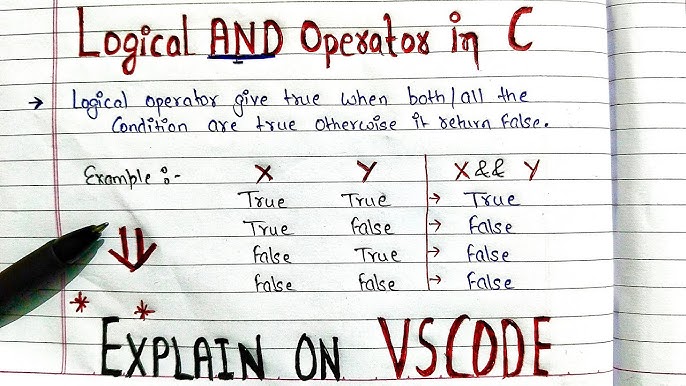 Logical AND Operator in C
→ Logical operator give true when both/all the
Condition are true otherwise it return false.
Example :- X Y X && Y
True True → True
True false → false
false True → false
false false → false
* * EXPLAIN ON VSCODE